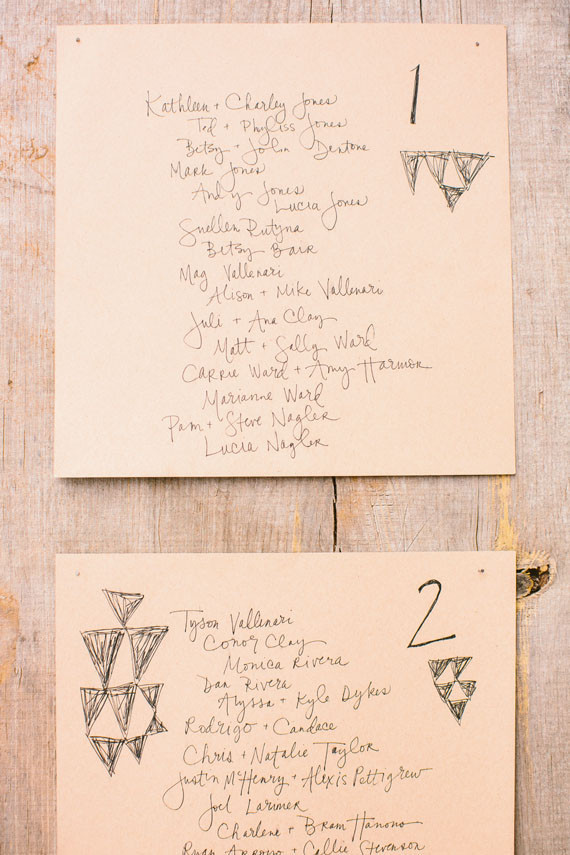 1
Kathleen + Charley Jones
Ted + Phyliss Jones
Betsy + John Dentone
Mark Jones
Andy Jones
Lucia Jones
Suellen Rutyna
Betsy Barr
Mag Vallenari
Alison + Mike Vallenari
Juli + Ana Clay
Matt + Sally Ward
Carrie Ward + Amy Harmon
Marianne Ward
Pam + Steve Nagler
Lucia Nagler
2
Tyson Vallenari
Conor Clay
Monica Rivera
Dan Rivera
Alyssa + Kyle Dykes
Rodrigo + Candace
Chris + Natalie Taylor
Justin McHenry + Alexis Pettigrew
Joel Larimer
Charlene + Bram Hanono
Ryan Arroyo + Callie Stevenson